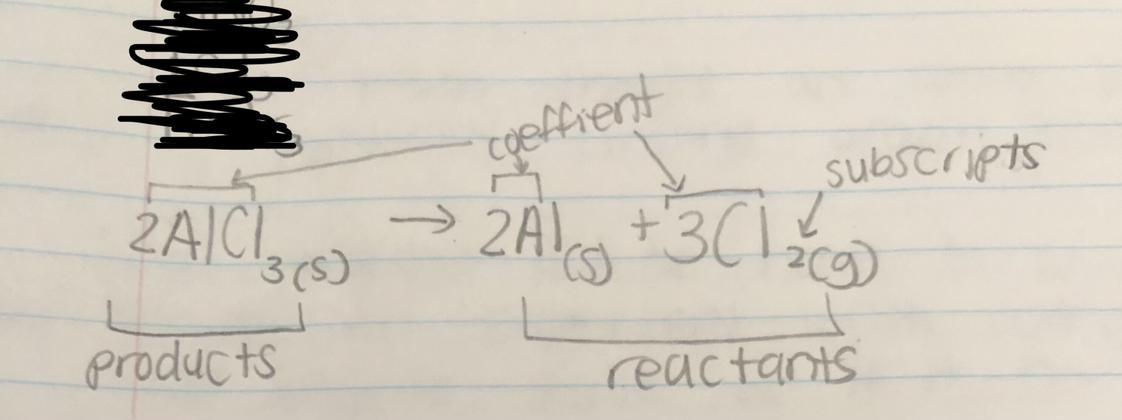 coeffient
subscripts
2AlCl3(s) → 2Al(s) + 3Cl2(g)
products
reactants